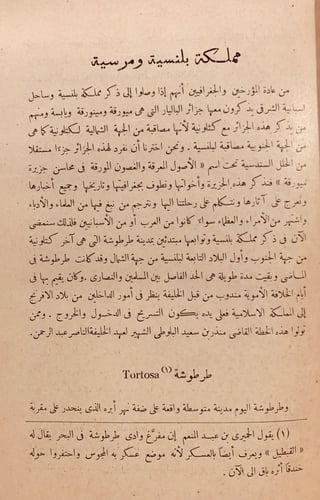 مملكة بلنسية ومرسية
من عادة المؤرخين والجغرافيين أنهم إذا وصلوا إلى ذكر مملكة بلنسية وساحل
اسبانية الشرقى يذكرون معها جزائر الباليار التى هى ميورقة ومينورقة ويابسة ومنهم
من يذكر هذه الجزائر مع كتلونية لأنها مصاقبة من الجهة الشمالية لكتلونية كما هى
من الجهة الجنوبية مصاقبة لبلنسية . ونحن اخترنا أن نفرد لهذه الجزائر جزءاً مستقلا
من الحلل السندسية تحت اسم « الأصول المعرقة والغصون المورقة فى محاسن جزيرة
ميورقة » فنذكر هذه الجزيرة وأخواتها ونطوف بجغرافيتها وتاريخها وجميع أخبارها
ونعرج على آثارها ونتكلم على رحلتنا اليها ونترجم من نبغ فيها من العلماء والأدباء
واشتهر من الأمراء والعظماء سواء كانوا من العرب أو من الأسبانيين فلذلك سنمضى
الآن فى ذكر مملكة بلنسية وتوابعها مبتدئين بمدينة طرطوشة التى هى آخر كتلونية
من جهة الجنوب وأول البلاد التابعة لبلنسية من جهة الشمال وقد كانت طرطوشة فى
الماضى وبقيت مدة طويلة هى الحد الفاصل بين المسلمين والنصارى . وكان يقيم بها فى
أيام الخلافة الأموية مندوب من قبل الخليفة ينظر فى أمور الداخلين من بلاد الافرنج
إلى المملكة الاسلامية فعلى يده يكون التسريح فى الدخول والخروج . وممن
تولوا هذه الخطة القاضى منذر بن سعيد البلوطى الشهير لعهد الخليفة الناصر عبد الرحمن.
طرطوشة (١) Tortosa
وطرطوشة اليوم مدينة متوسطة واقعة على ضفة نهر أبره الذى ينحدر على مقربة
(١) يقول الحميرى بن عبد المنعم إن مفرغ وادى طرطوشة فى البحر يقال له
« القبطيل » ويعرف أيضاً بالعسكر لأنه موضع عسكر به المجوس واحتفروا حوله
خندقا أثره باق الى الآن .